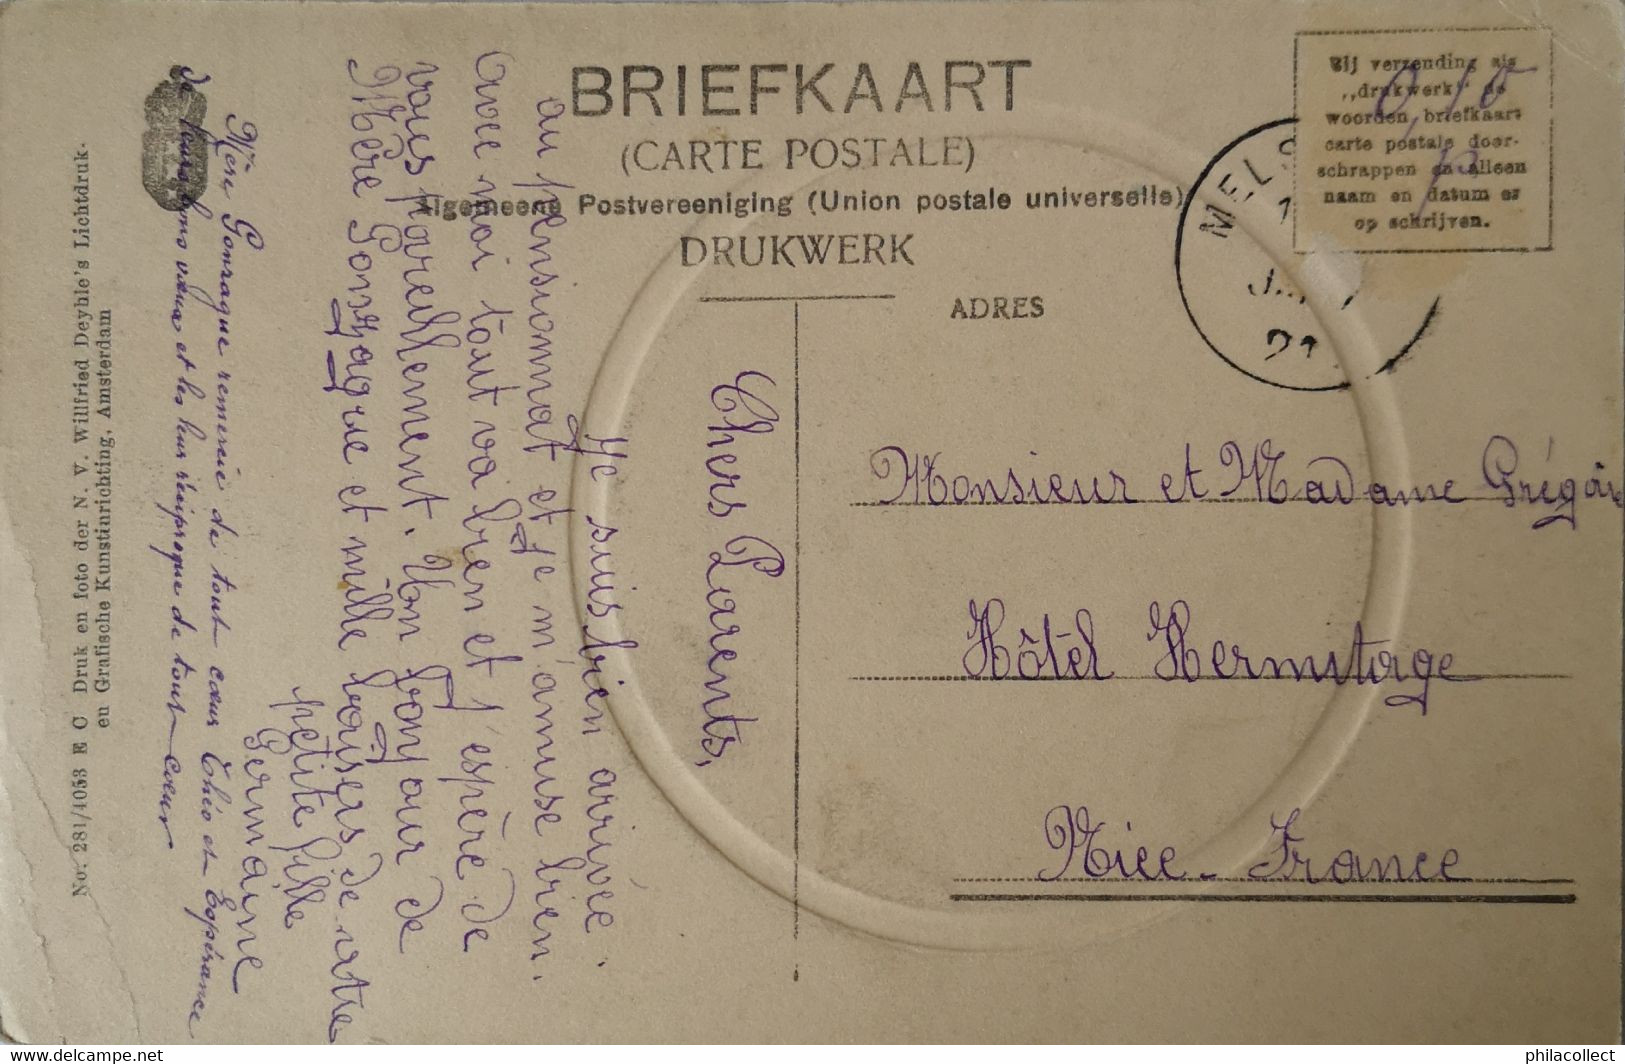 BRIEFKAART
(CARTE POSTALE)
Algemeene Postvereeniging (Union postale universelle)
DRUKWERK
ADRES
Bij verzending als
„drukwerk" de
woorden briefkaart
carte postale door-
schrappen en alleen
naam en datum er
op schrijven.
0,10
MELS
21
Monsieur et Madame Grégoire
Hôtel Hermitage
Nice - France
Chers Parents,
Je suis bien arrivée
au pensionnat et je m'amuse bien.
Avec moi tout va bien et j'espère de
vous pareillement. Un bonjour de
Mère Gonzague et mille baisers de votre
petite fille
Germaine
Mère Gonzague remercie de tout cœur Théo et Espérance
de leurs bons vœux et les leur réciproque de tout cœur
No: 281/4053 E C Druk en foto der N. V. Willfried Deyhle's Lichtdruk-
en Grafische Kunstinrichting, Amsterdam
https://www.delcampe.net
philacollect